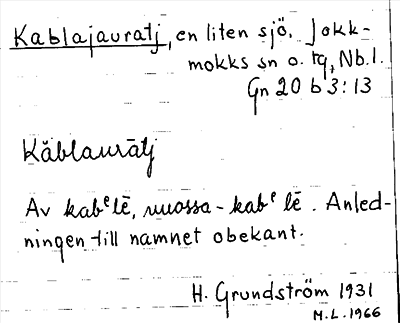 Kablajauratj, en liten sjö, Jokk-
mokks sn o. tg, Nb. l.
Gn 20 b 3:13
Käblaurātj
Av kabᵉlē, muossa-kabᵉlē. Anled-
ningen till namnet obekant.
H. Grundström 1931
M.L. 1966